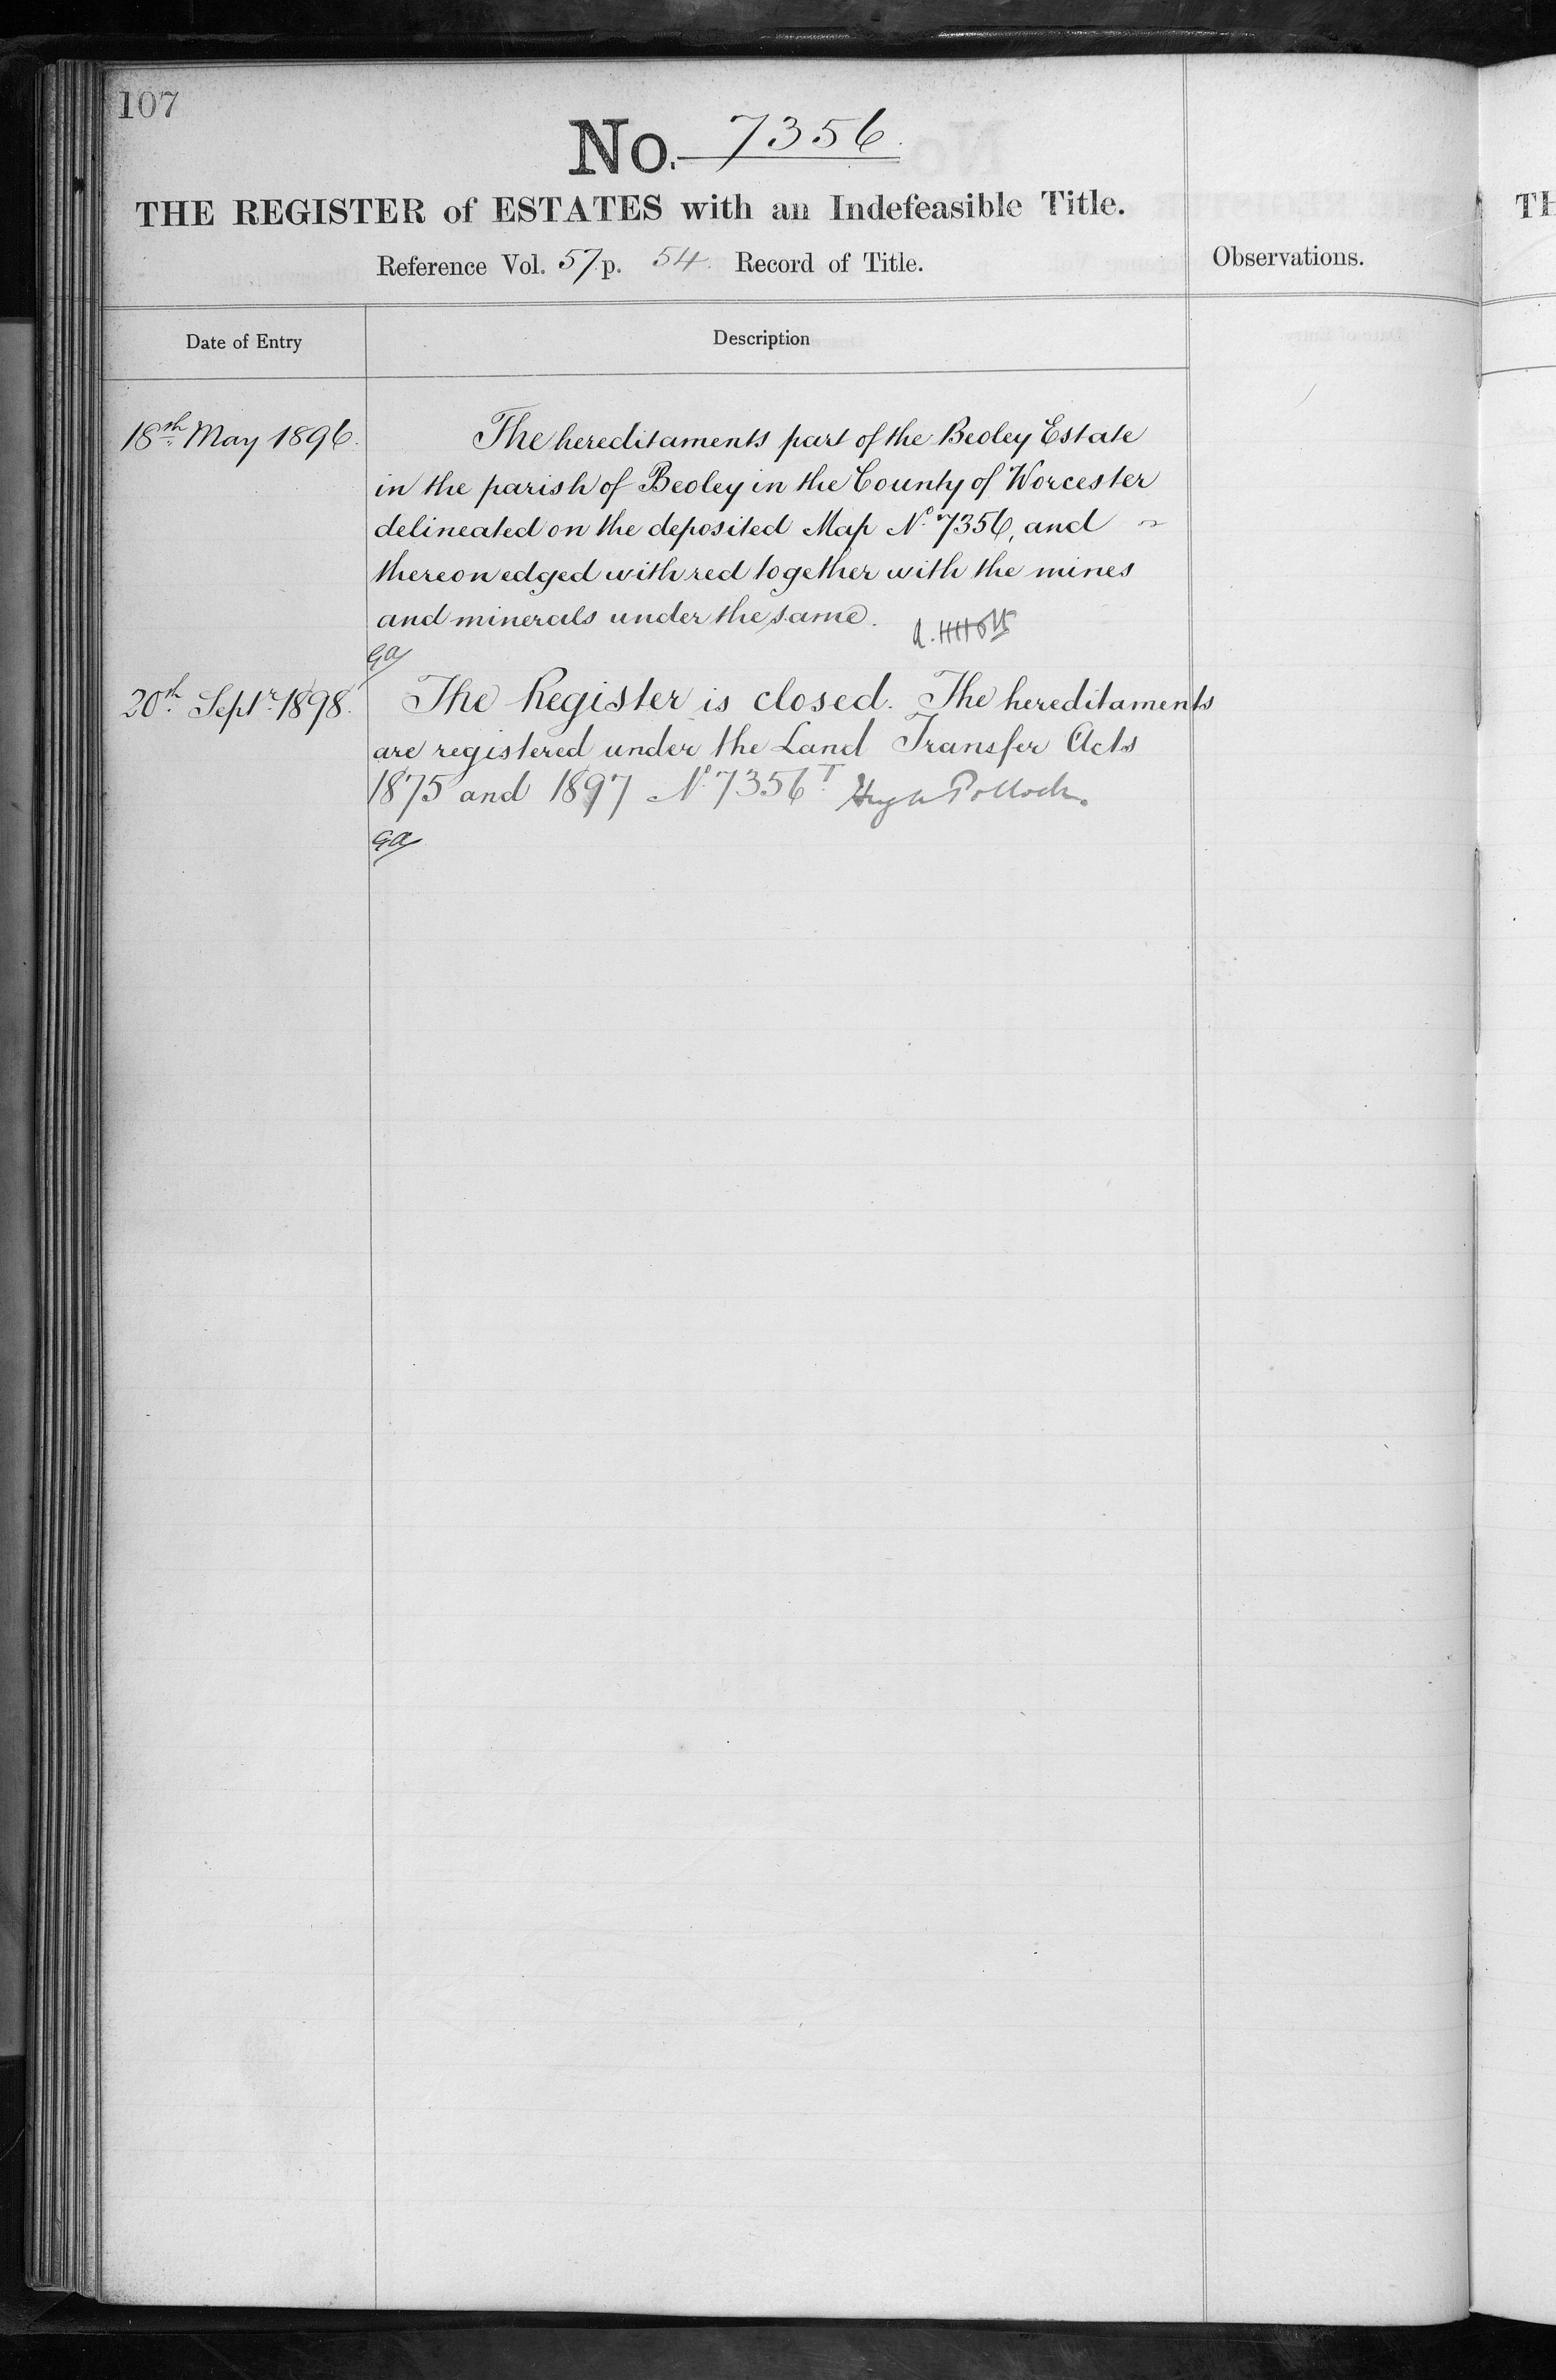 107
No. 7356.
THE REGISTER of ESTATES with an Indefeasible Title.
Reference Vol. 57 p. 54. Record of Title.
Observations.
Date of Entry
Description
18th May 1896.
The hereditaments part of the Beoley Estate
in the parish of Beoley in the County of Worcester
delineated on the deposited Map No. 7356, and
thereon edged with red together with the mines
and minerals under the same.
20th Septr. 1898.
The Register is closed. The hereditaments
are registered under the Land Transfer Acts
1875 and 1897 No. 7356T Hugh Pollock.
TH